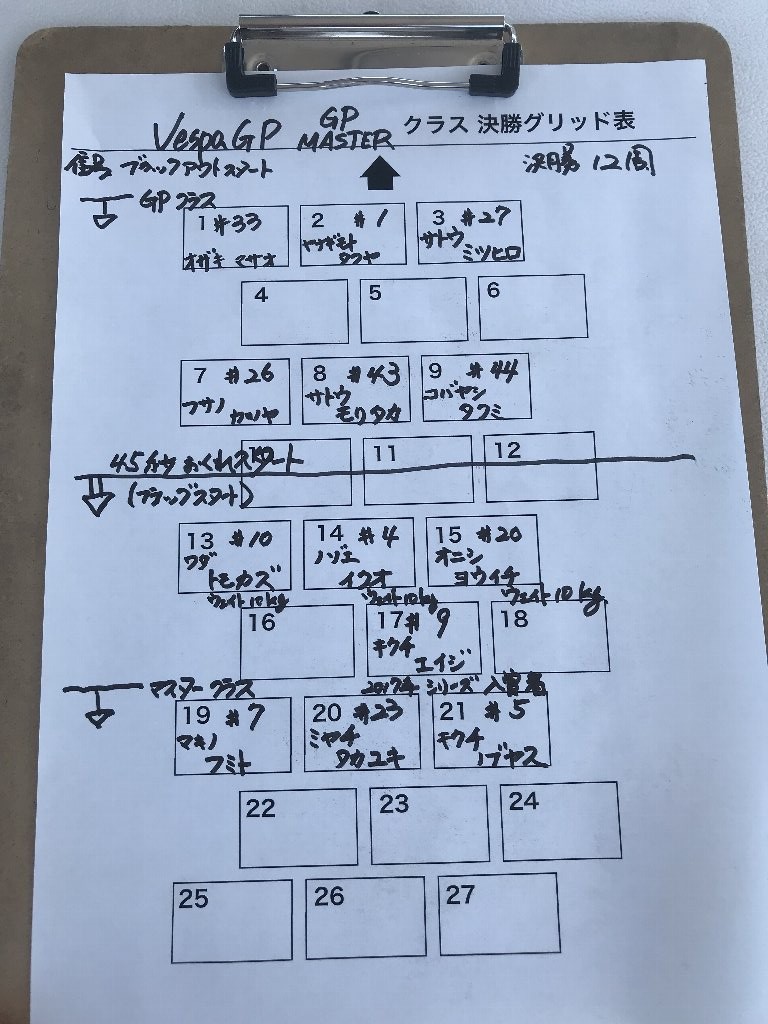 Vespa GP GP MASTER クラス 決勝グリッド表
信号 ブラックアウトスタート
決勝 12周
GPクラス
1 #33 オザキ マサオ
2 #1 ヤナギモト タクヤ
3 #27 サトウ ミツヒロ
4
5
6
7 #26 フサノ カツヤ
8 #43 サトウ モリタカ
9 #44 コバヤシ タクミ
10
11
12
45 おくれスタート
(フラッグスタート)
13 #10 ワダ トモカズ
14 #4 ノゾエ イクオ
15 #20 オニシ ヨウイチ
ウェイト10kg
ウェイト10kg
ウェイト10kg
16
17 #9 キクチ エイジ
18
マスタークラス
2017年 シリーズ 入賞者
19 #7 マキノ フミト
20 #23 ミヤチ タカユキ
21 #5 キクチ ノブヤス
22
23
24
25
26
27